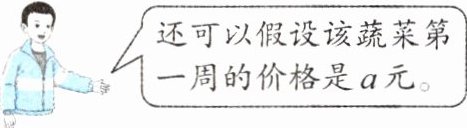 还可以假设该蔬菜第
一周的价格是a元。